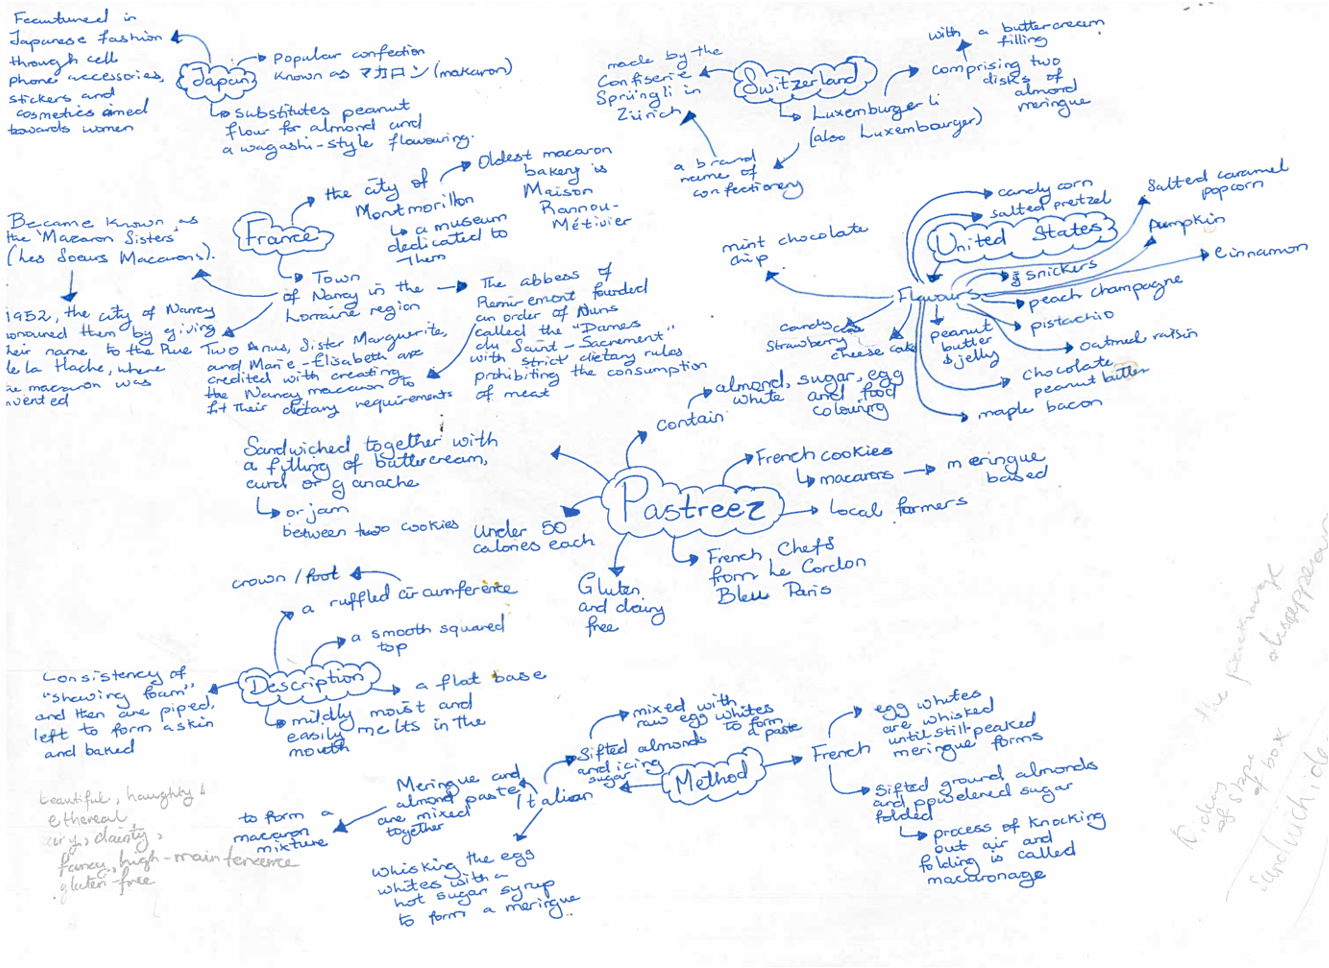 Feautured in
Japanese fashion
through cell
phone accessories,
stickers and
cosmetics aimed
towards women
Japan
Popular confection
known as マカロン (makaron)
Substitutes peanut
flour for almond and
a wagashi-style flavouring.
made by the
Confiserie
Sprüngli in
Zürich
Switzerland
with a buttercream
filling
comprising two
disks of
almond
meringue
Luxemburgerli
(also Luxembourger)
a brand
name of
confectionery
France
the city of
Montmorillon
a museum
dedicated to
them
Oldest macaron
bakery is
Maison
Rannou-
Métivier
Became known as
the 'Macaron Sisters'
(Les Soeurs Macarons).
Town
of Nancy in the
Lorraine region
The abbess of
Remiremont founded
an order of Nuns
called the "Dames
du Saint-Sacrement"
with strict dietary rules
prohibiting the consumption
of meat
1952, the city of Nancy
onoured them by giving
heir name to the Rue
de la Hache, where
he macaron was
nvented
Two Nuns, Sister Marguerite,
and Marie-Elisabeth are
credited with creating
the Nancy macaron to
fit their dietary requirements
United States
candy corn
salted pretzel
Salted caramel
popcorn
Pumpkin
cinnamon
Flavours
snickers
peach champagne
pistachio
oatmeal raisin
chocolate
peanut butter
maple bacon
peanut
butter
& jelly
cheese cake
candy
strawberry
mint chocolate
chip
Pastreez
contain
almond, sugar, egg
white and food
colouring
French cookies
macarons
meringue
based
Local farmers
French Chefs
from Le Cordon
Bleu Paris
Gluten
and dairy
free
Under 50
calories each
Sandwiched together with
a filling of buttercream,
curd or ganache
or jam
between two cookies
Description
crown / foot
a ruffled circumference
a smooth squared
top
a flat base
mildly moist and
easily melts in the
mouth
Consistency of
"shawing foam"
and then are piped,
left to form a skin
and baked
Method
French
egg whites
are whisked
until still-peaked
meringue forms
Sifted ground almonds
and powdered sugar
folded
process of knocking
out air and
folding is called
macaronage
Italian
mixed with
raw egg whites
to form
a paste
Sifted almonds
and icing
sugar
Meringue and
almond paste
are mixed
together
to form a
macaron
mixture
whisking the egg
whites with a
hot sugar syrup
to form a meringue
beautiful, haughty &
ethereal,
airy, dainty,
fancy, high-maintenence
gluten-free
the package
of shape
of box